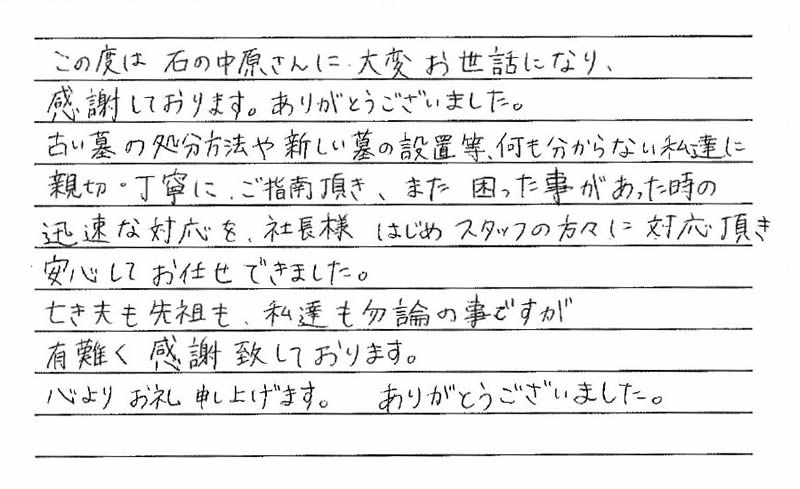 この度は 石の中原さんに 大変 お世話になり、
感謝しております。ありがとうございました。
古い墓の処分方法や新しい墓の設置等、何も分からない私達に
親切・丁寧に、ご指南頂き、また 困った事があった時の
迅速な対応を、社長様 はじめ スタッフの方々に 対応頂き
安心して お任せできました。
亡き夫も先祖も、私達も勿論の事ですが
有難く 感謝致しております。
心より お礼 申し上げます。 ありがとうございました。